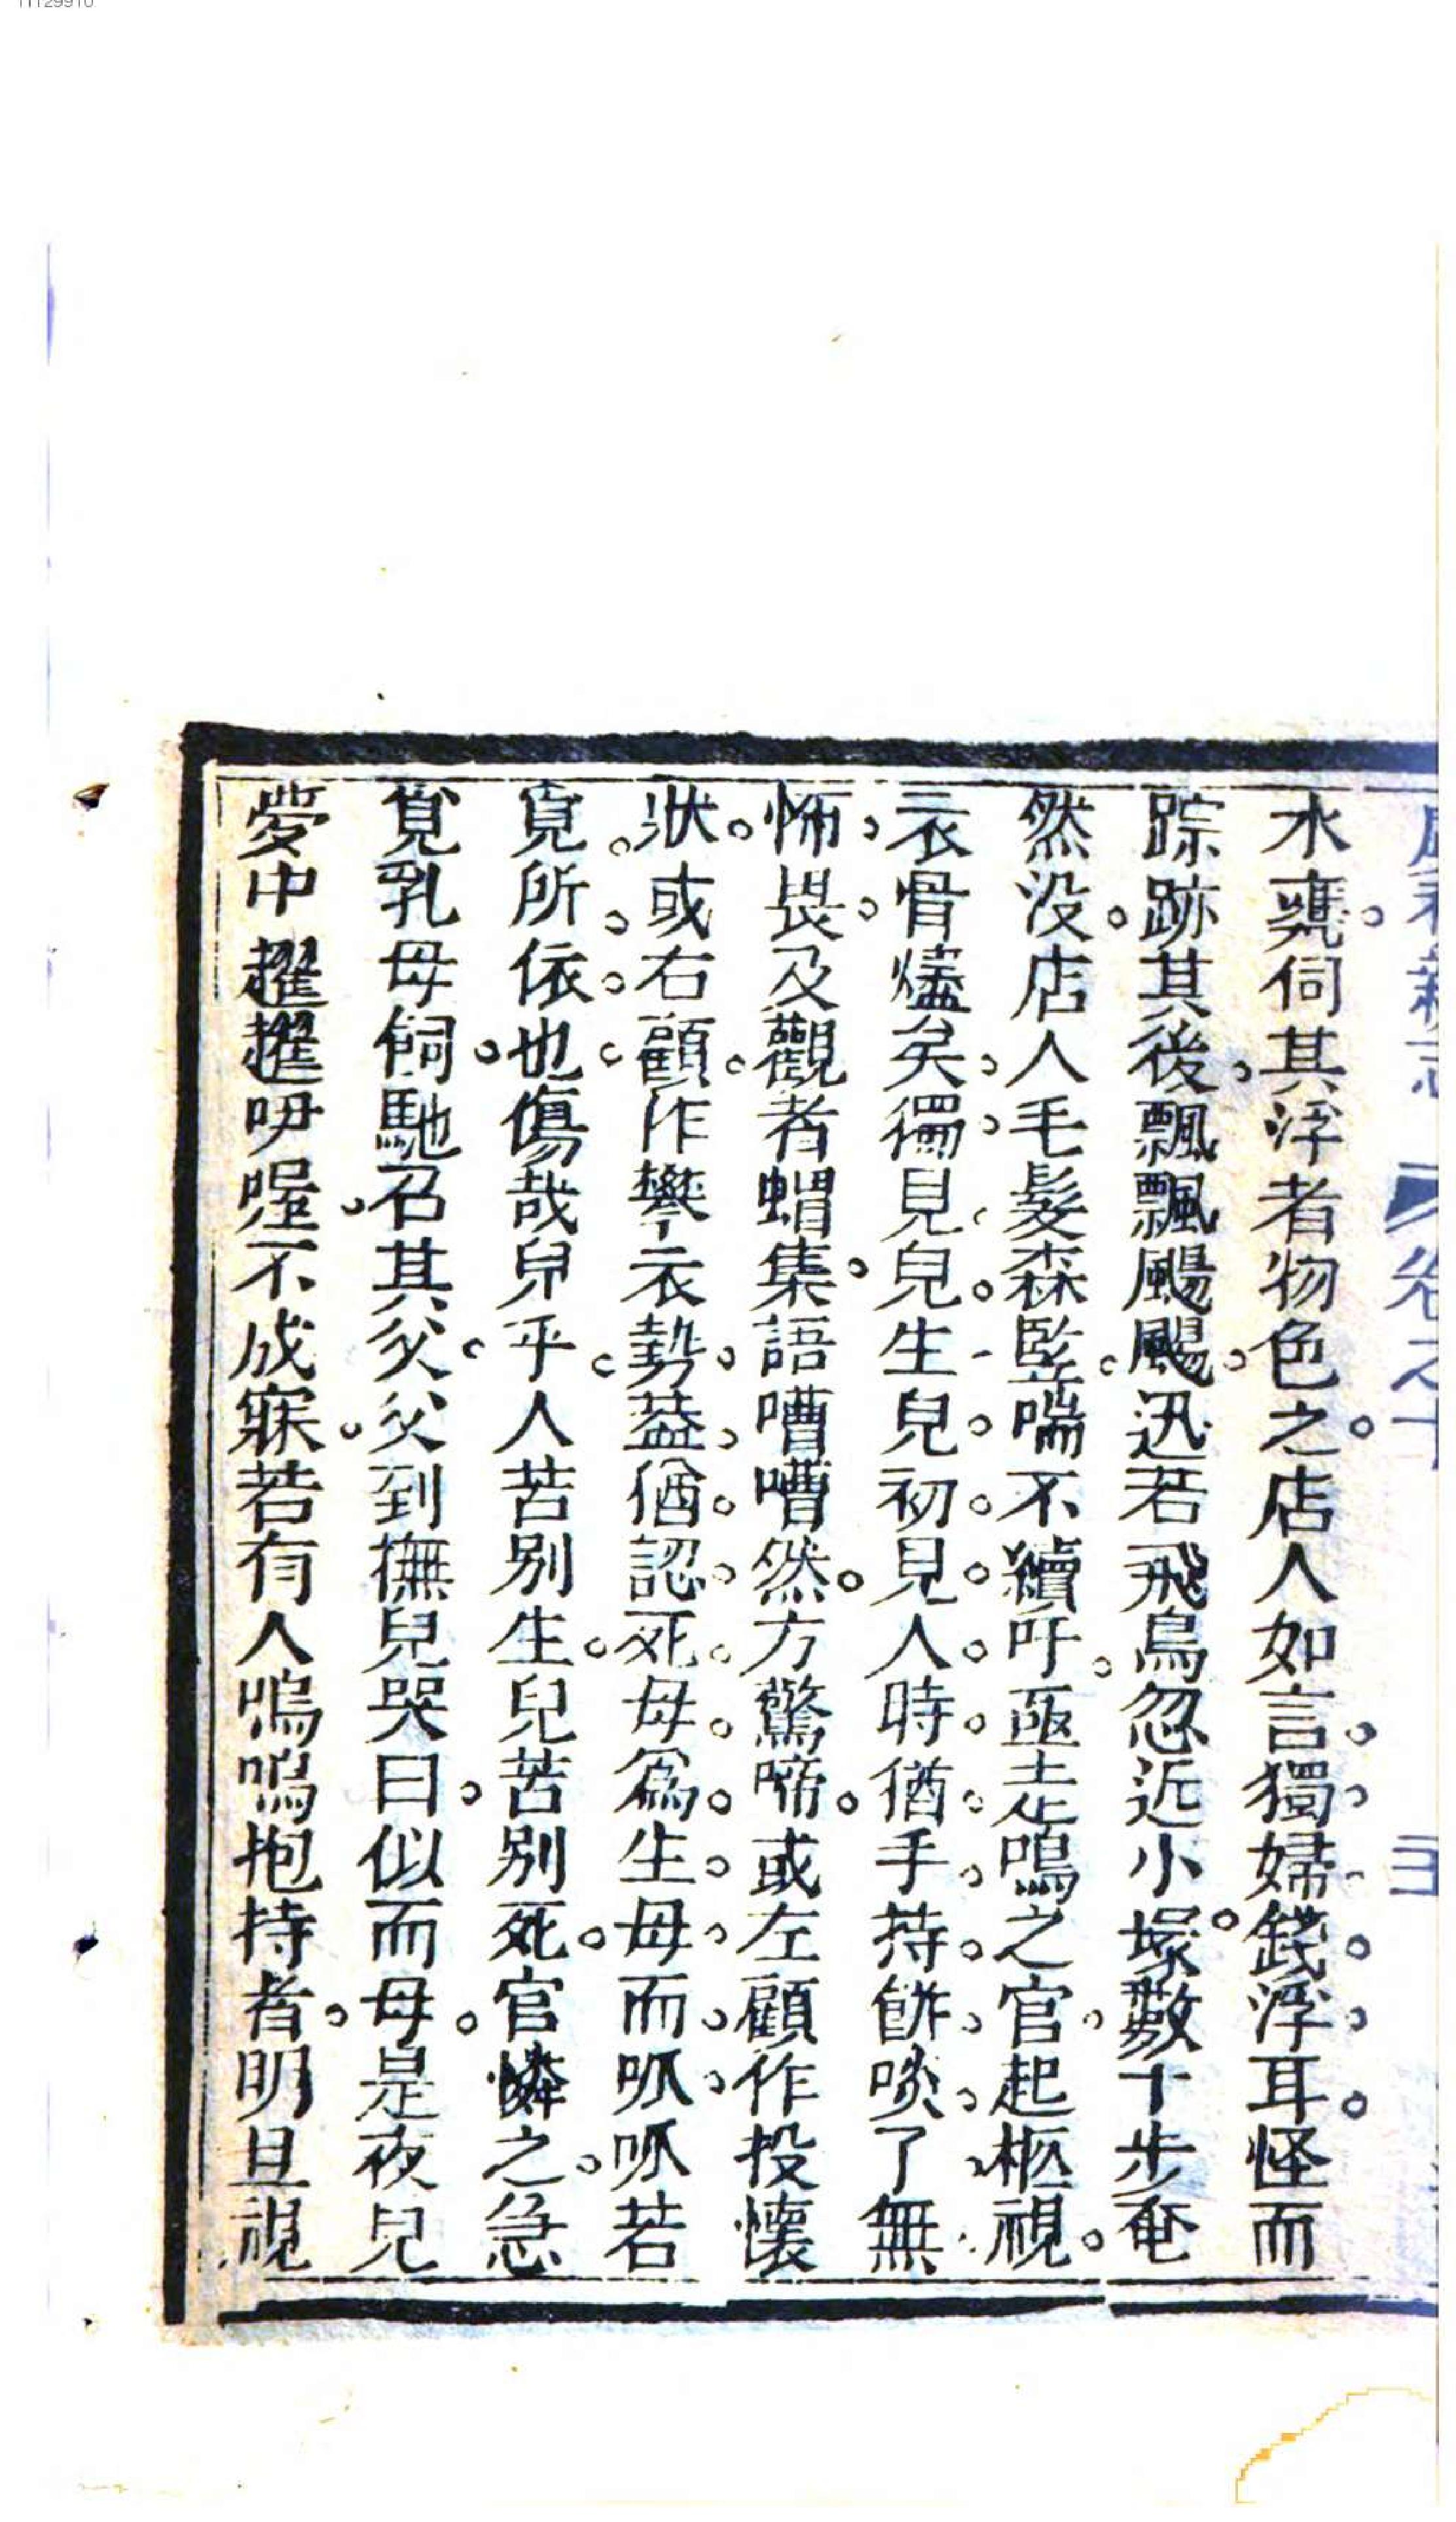 水甕。伺其浮者物色之。店人如言。獨婦錢浮耳。怪而
踪跡其後。飄飄颺颺。迅若飛鳥。忽近小塚。數十步奄
然没。店人毛髮森竪。喘不續吁。亟走鳴之官。起柩視。
衣骨燼矣。獨見兒生。兒初見人時。猶手持餅啖了。無
怖畏。及觀者蝟集。語嘈嘈然。方驚啼。或左顧作投懷
狀。或右顧作攀衣勢。葢猶認死母爲生母。而呱呱若
覓所依也。傷哉兒乎。人苦別生。兒苦別死。官憐之。急
覓乳母飼。馳召其父。父到撫兒哭曰。似而母。是夜兒
夢中趯趯呷喔。不成寐。若有人嗚嗚抱持者。明旦視
虞初新志 卷之十